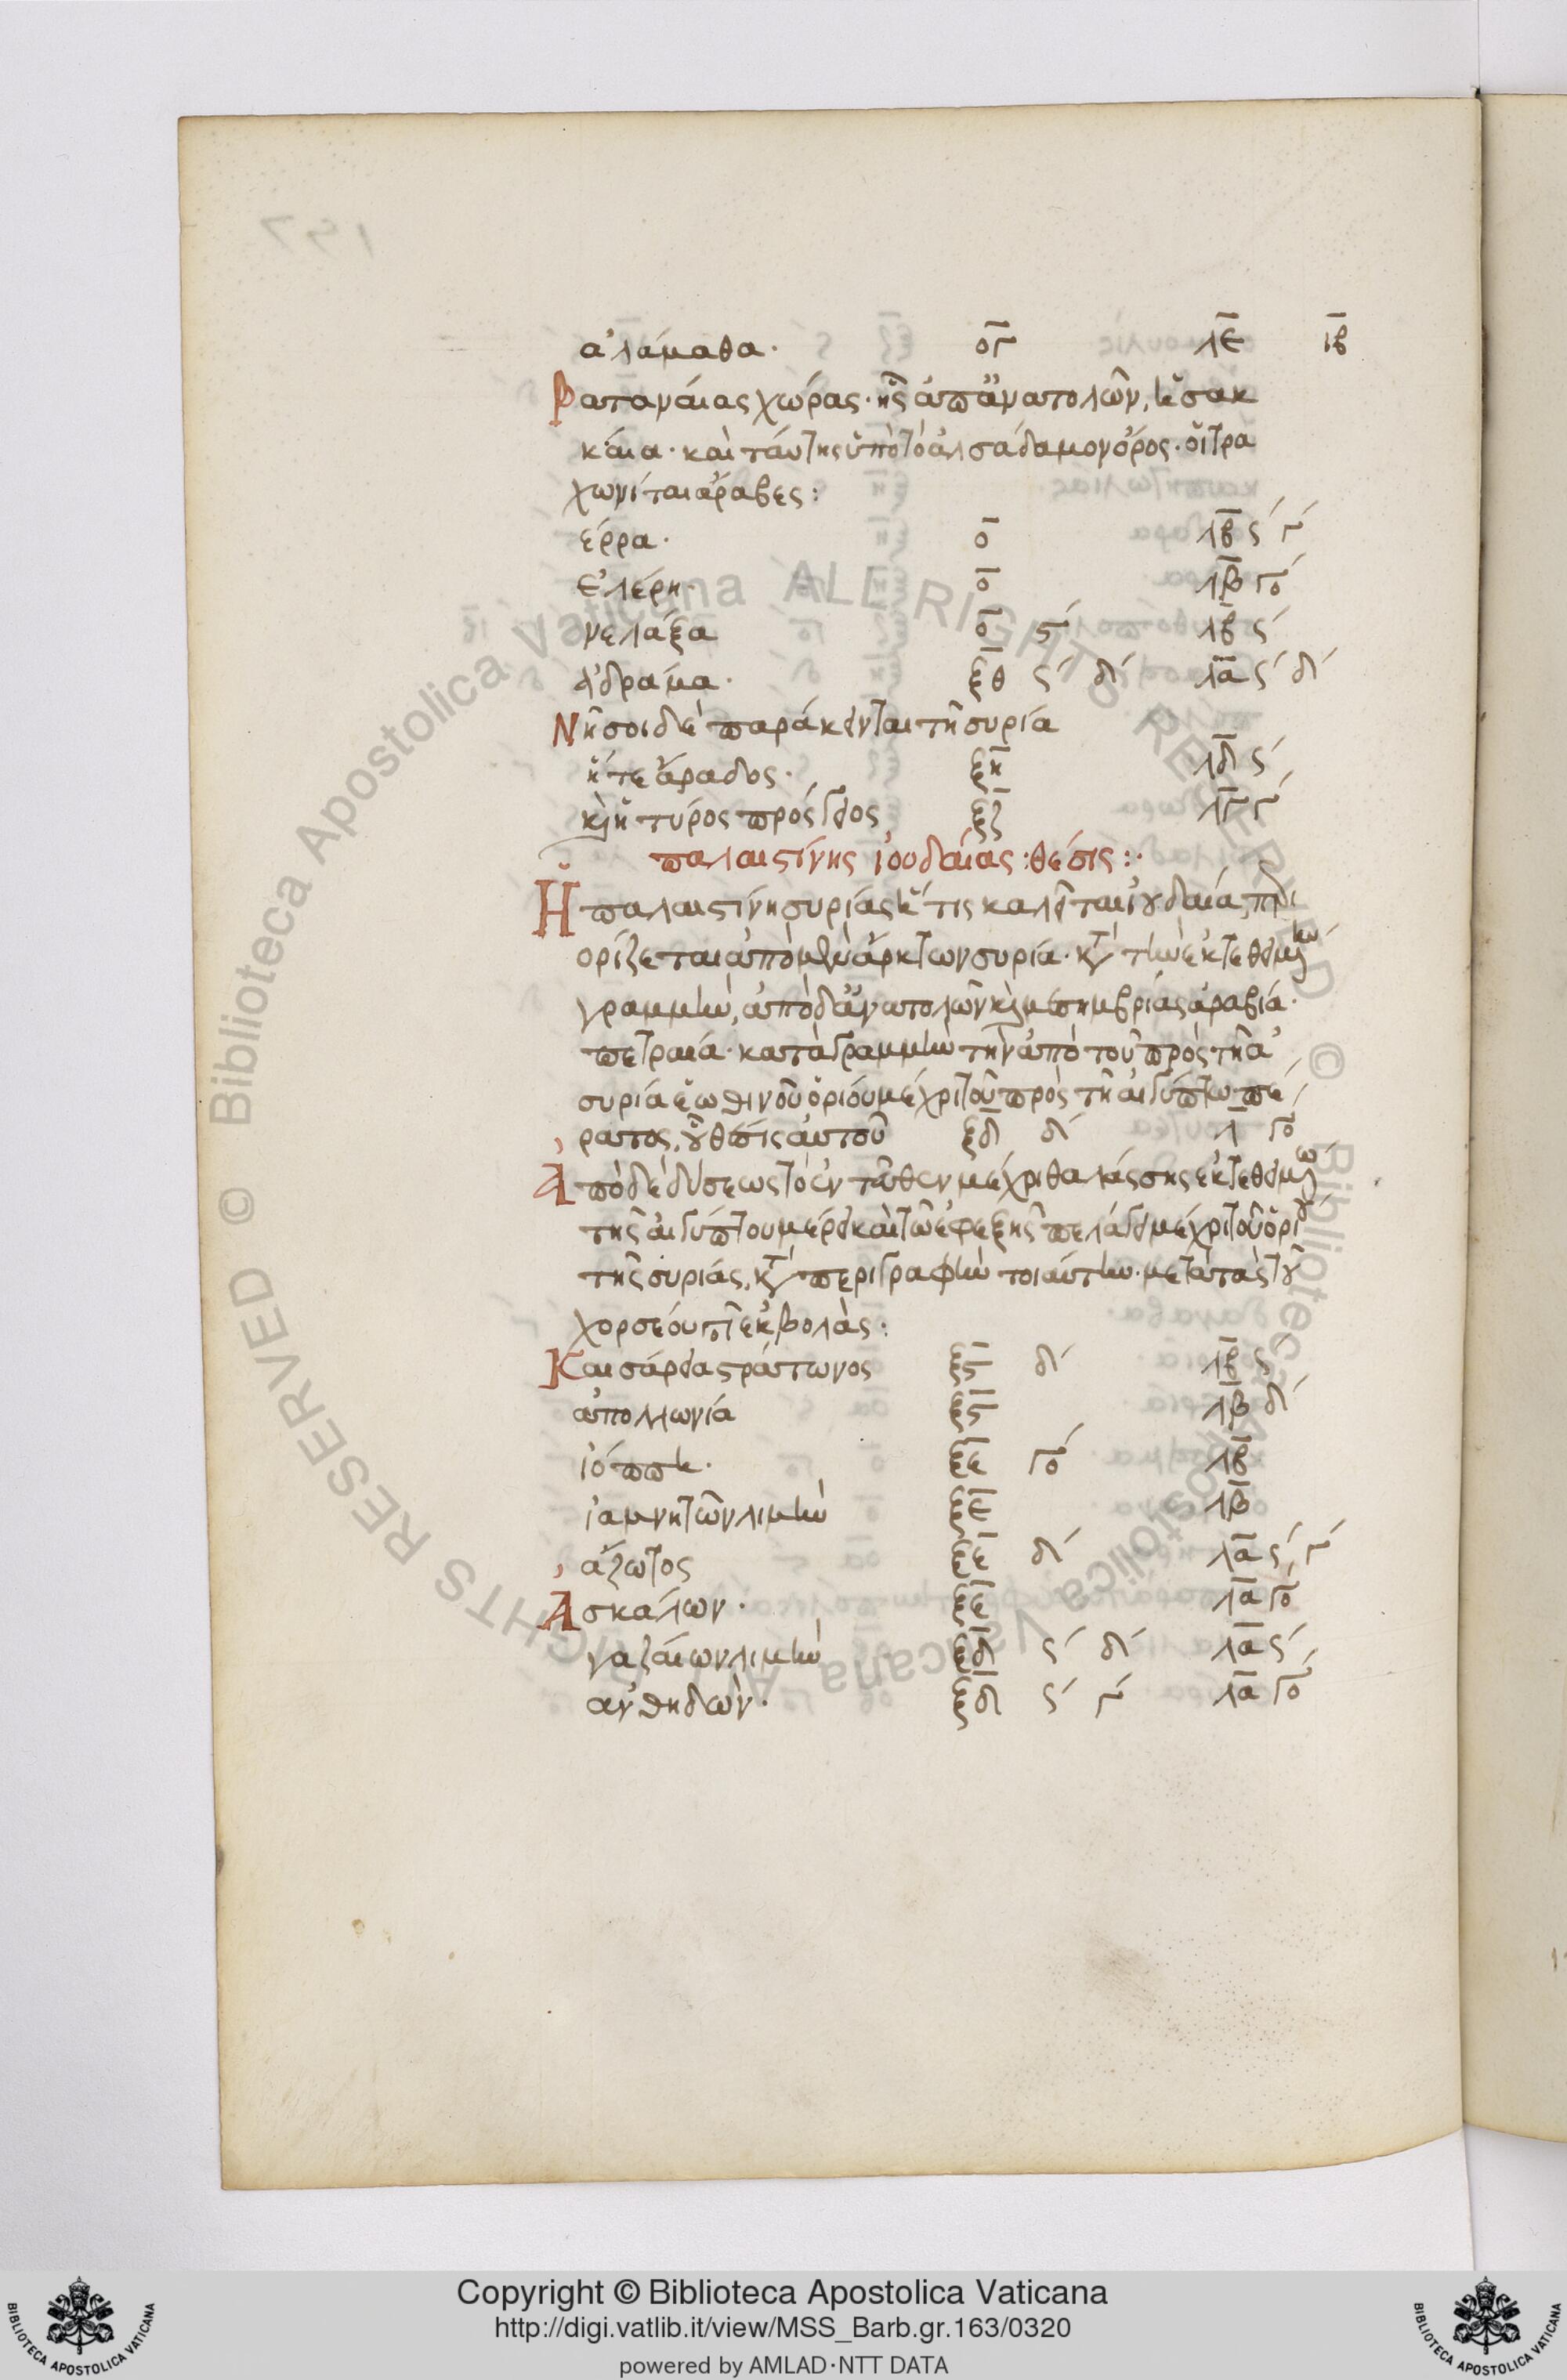 ἀλάμαθα· ο̅γ̅ λ̅ε̅ ι̅β̅
βαταναίας χώρας· ἧς ἀπ' ἀνατολῶν, ἡ σακ
καία· καὶ ταύτης ὑπὸ τὸ ἀλσάδαμον ὄρος· οἱ τρα
χωνίται ἄραβες:
έρρα· ο̅ λ̅β̅ ς´ γ´
ἐλέρη· ο̅ λ̅β̅ γο´
νελάξα ο̅ ϛ´ λ̅β̅ ς´
ἀδράμα· ξ̅θ̅ ς´ δ´ λ̅α̅ ς´ δ´
Νῆσοι δὲ παράκεινται τῆ συρία
ἥ τε ἄραδος· ξ̅η̅ λ̅δ̅ ς´
καὶ ἡ τύρος πρόσγειος ξ̅ζ̅ λ̅γ̅ γ´
παλαιστίνης ἰουδαίας: θέσις:·
Ἡ παλαιστίνη συρίας ἥτις καλεῖται ἰουδαία, περι
ορίζεται ἀπὸ μὲν ἄρκτων συρία· κατὰ τὴν ἐκτεθειμένην
γραμμὴν, ἀπὸ δ' ἀνατολῶν καὶ μεσημβρίας ἀραβία·
πετραία· κατὰ γραμμὴν τὴν ἀπὸ τοῦ πρὸς τῆ ἀ
συρία ἑωθινοῦ ὁρίου μέχρι τοῦ πρὸς τῆ αἰγύπτω πέ
ρατος, οὗ θέσις αὐτοῦ ξ̅δ̅ δ´ λ̅ γο´
Ἀπὸ δὲ δύσεως τὸ ἐντεῦθεν μέχρι θαλάσσης ἐκτεθειμένω
τῆς αἰγύπτου μέρει καὶ τῶ ἐφεξῆς πελάγει μέχρι τοῦ ὁρίου
τῆς συρίας, κατὰ περιγραφὴν τοιαύτην· μετὰ τὰς τοῦ
χορσέου π ἐκβολὰς:
Καισάρεια στράτωνος ξ̅ϛ̅ δ´ λ̅β̅ ς´
ἀπολλωνία ξ̅ϛ̅ λ̅β̅ δ´
ἰόππη· ξ̅ε̅ γο´ λ̅β̅
ἰαμνητῶν λιμὴν ξ̅ε̅ λ̅β̅
ἄζωτος ξ̅ε̅ δ´ λ̅α̅ ς´ γ´
Ἀσκάλων· ξ̅ε̅ λ̅α̅ γο´
γαζαίων λιμὴν ξ̅δ̅ ς´ δ´ λ̅α̅ ς´
ἀνθηδὼν· ξ̅δ̅ ς´ γ´ λ̅α̅ γο´
Copyright © Biblioteca Apostolica Vaticana
http://digi.vatlib.it/view/MSS_Barb.gr.163/0320
powered by AMLAD·NTT DATA